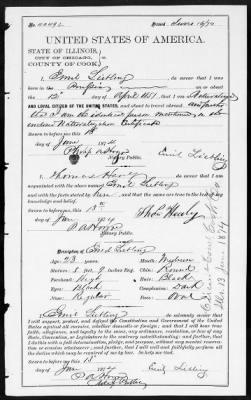 No. 40492 Issued, June 16/74
UNITED STATES OF AMERICA.
STATE OF ILLINOIS,
CITY OF CHICAGO, ss.
COUNTY OF COOK.
I, Emil Liebling, do swear that I was
born in Prussia on or about the
12th day of April 1851; that I am a Naturalized
AND LOYAL CITIZEN OF THE UNITED STATES, and about to travel abroad, and further
that I am the identical person mentioned in the
Naturalization Certificate
Sworn to before me this 13
day of June 1874 Emil Liebling
Notary Public.
I, Thomas Healy, do swear that I am
acquainted with the above named Emil Liebling
and with the facts stated by him, and that the same are true to the best of
my knowledge and belief.
Sworn to before me this 13th
day of June 1874 Thos Healy
Notary Public.
Description of Emil Liebling
Age: 23 years Mouth: Medium
Stature: 5 feet, 9 inches Eng. Chin: Round
Forehead: High Hair: Black
Eyes: Black Complexion: Dark
Nose: Regular Face: Oval
I, Emil Liebling, do solemnly swear that I
will support, protect, and defend the Constitution and Government of the United
States against all enemies, whether domestic or foreign; and that I will bear true
faith, allegiance, and loyalty to the same, any ordinance, resolution, or law of any
State, Convention, or Legislature to the contrary notwithstanding; and further,
that I do this with a full determination, pledge, and purpose, without any mental
reservation or evasion whatsoever; and further, that I will well and faithfully perform all
the duties which may be required of me by law. So help me God.
Sworn to before me this 13
day of June 1874 Emil Liebling
Notary Public